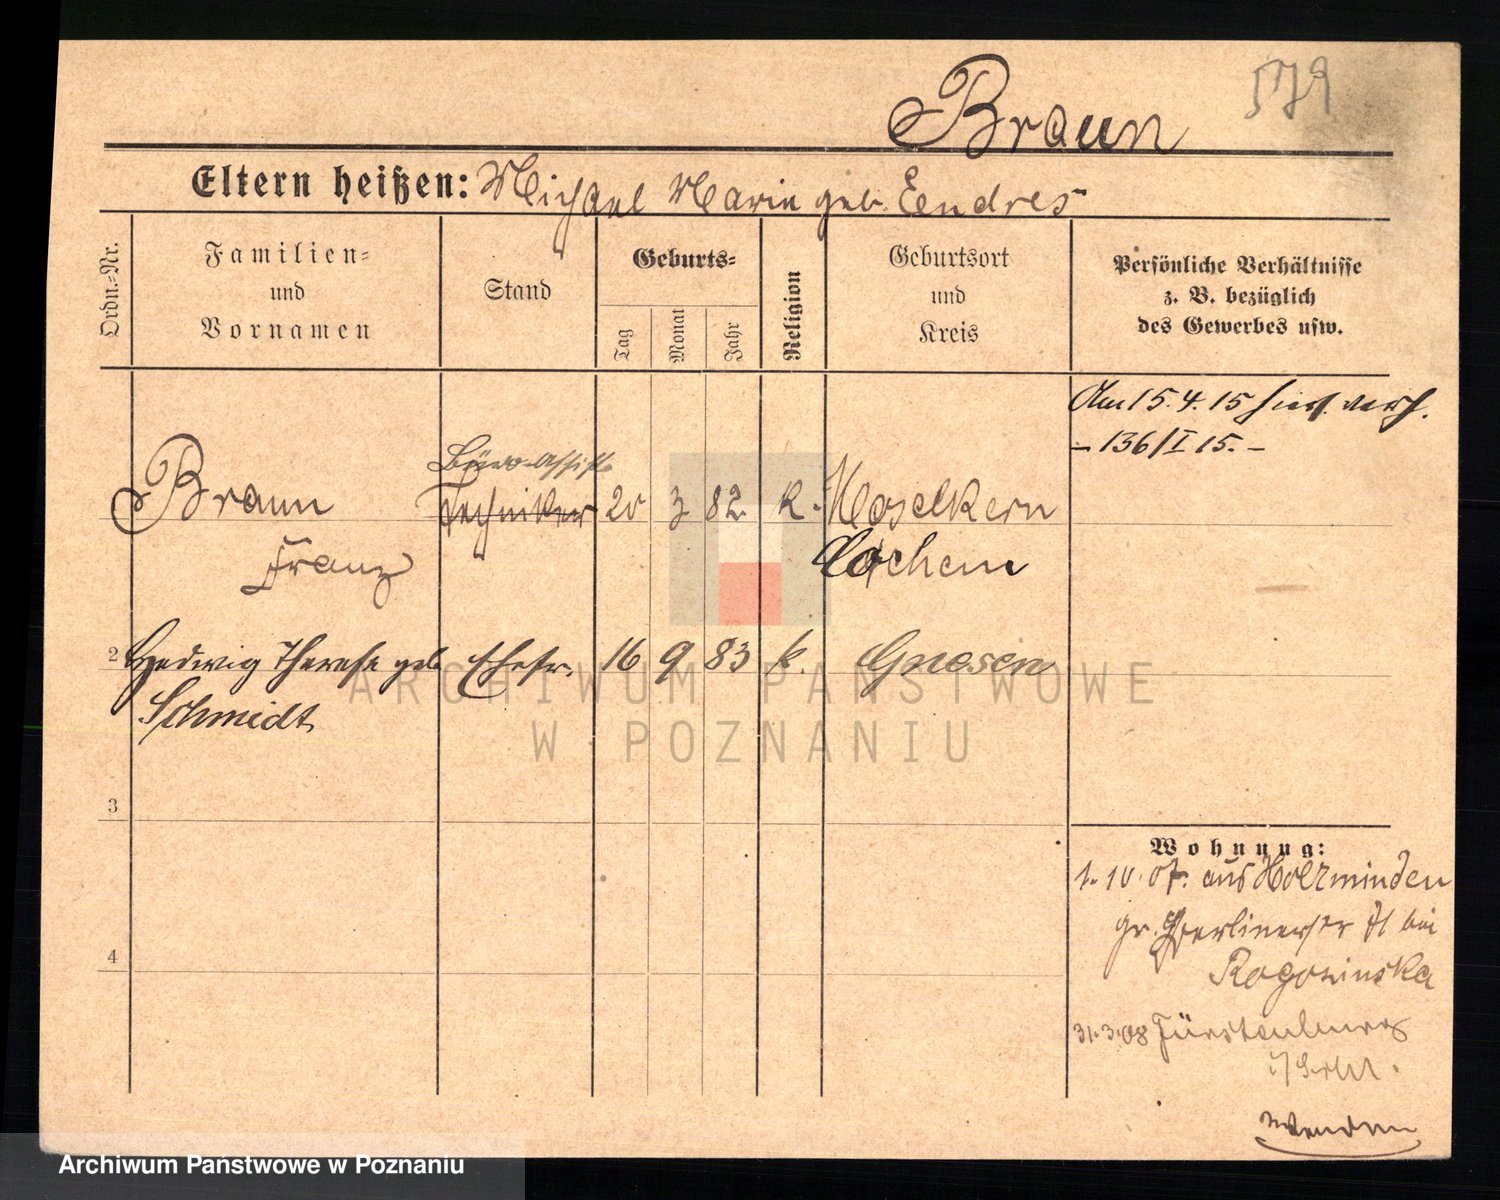 579
Braun
Eltern heißen: Michael Marie geb. Endres
Ordn.-Nr.
Familien-
und
Vornamen
Stand
Geburts-
Tag
Monat
Jahr
Religion
Geburtsort
und
Kreis
Persönliche Verhältnisse
z. B. bezüglich
des Gewerbes usw.
Am 15.4.15 hier verh.
- 136/I 15. -
Büro-Assist.
Braun Techniker 20 3 82 K. Moselkern
Franz Cochem
2 Hedwig Therese geb. Ehefr. 16 9 83 k. Gnesen
Schmidt
3
4
Wohnung:
1.10.07. aus Holzminden
gr. Berlinerstr bei
Rogozinska
31.3.08 Fürstenberg
Wenden
ARCHIWUM PAŃSTWOWE
W POZNANIU
Archiwum Państwowe w Poznaniu